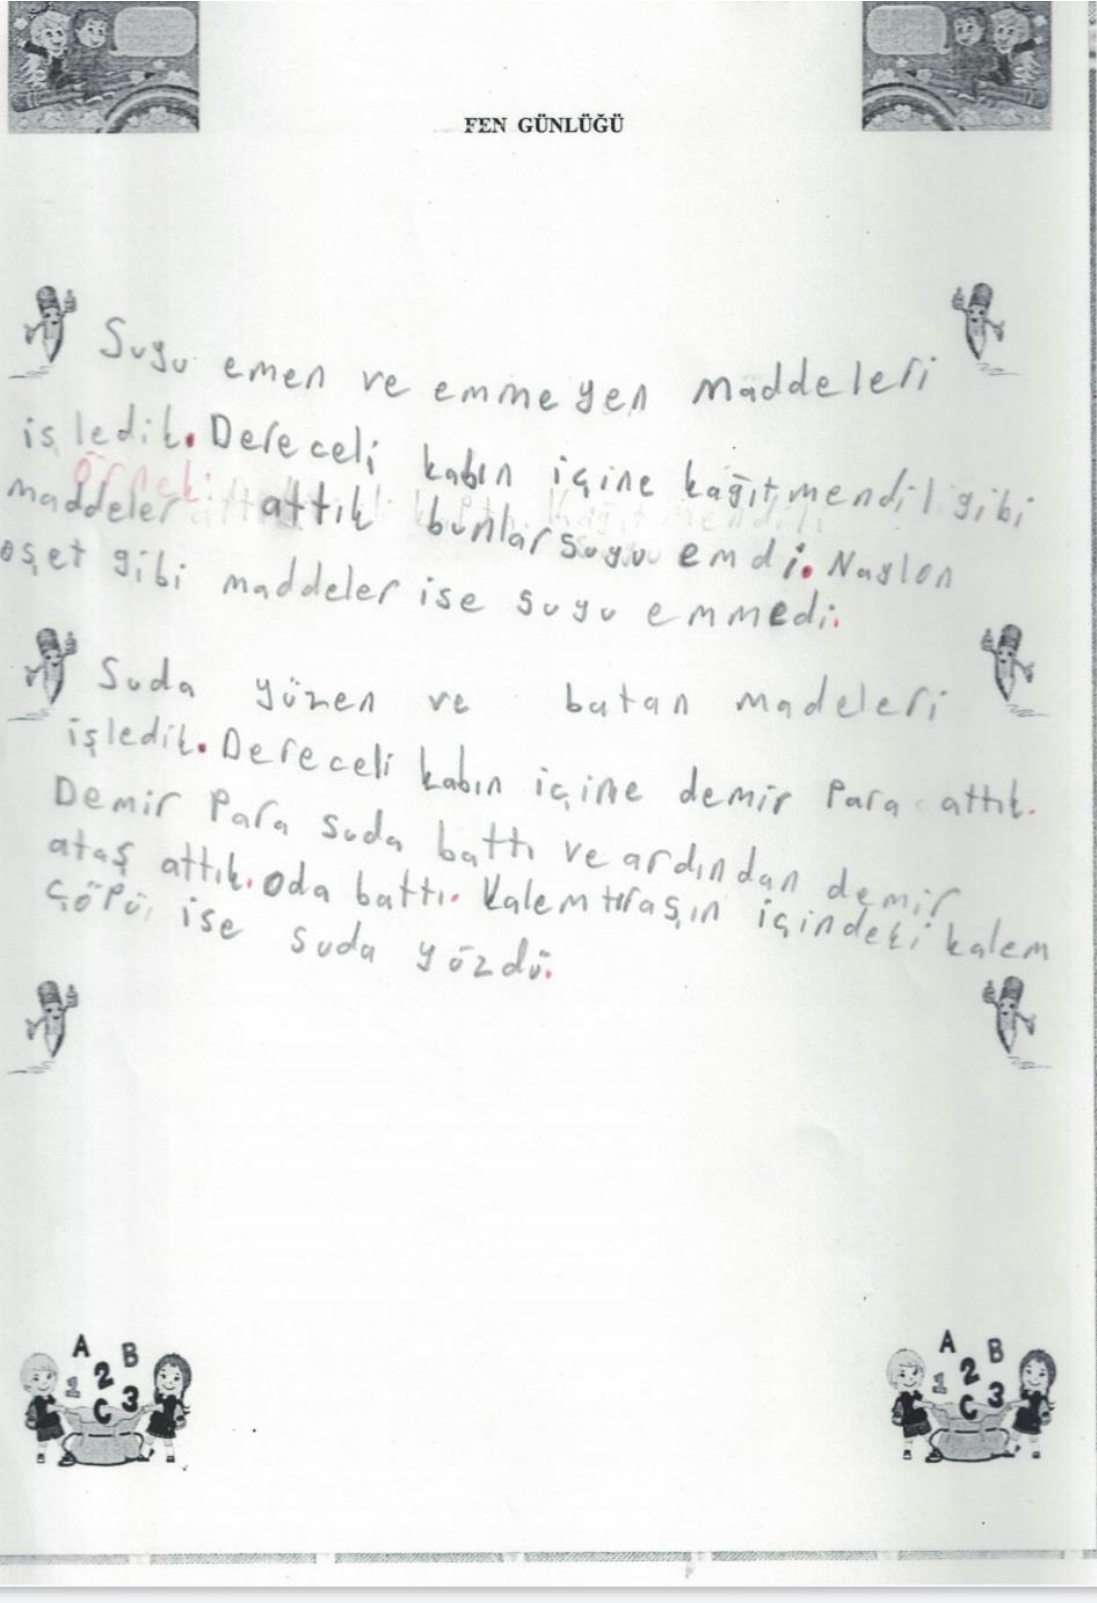 FEN GÜNLÜĞÜ
Suyu emen ve emmeyen maddeleri
işledik. Dereceli kabın içine kağıt mendil gibi
Örnek:
maddeler attık bunlar suyu emdi. Naylon
oşet gibi maddeler ise suyu emmedi.
Suda yüzen ve batan madeleri
işledik. Dereceli kabın içine demir Para attık.
Demir Para suda battı ve ardından demir
ataş attık. oda battı. Kalemtıraşın içindeki kalem
çöpü, ise suda yüzdü.
A B
1 2
C 3
A B
1 2
C 3